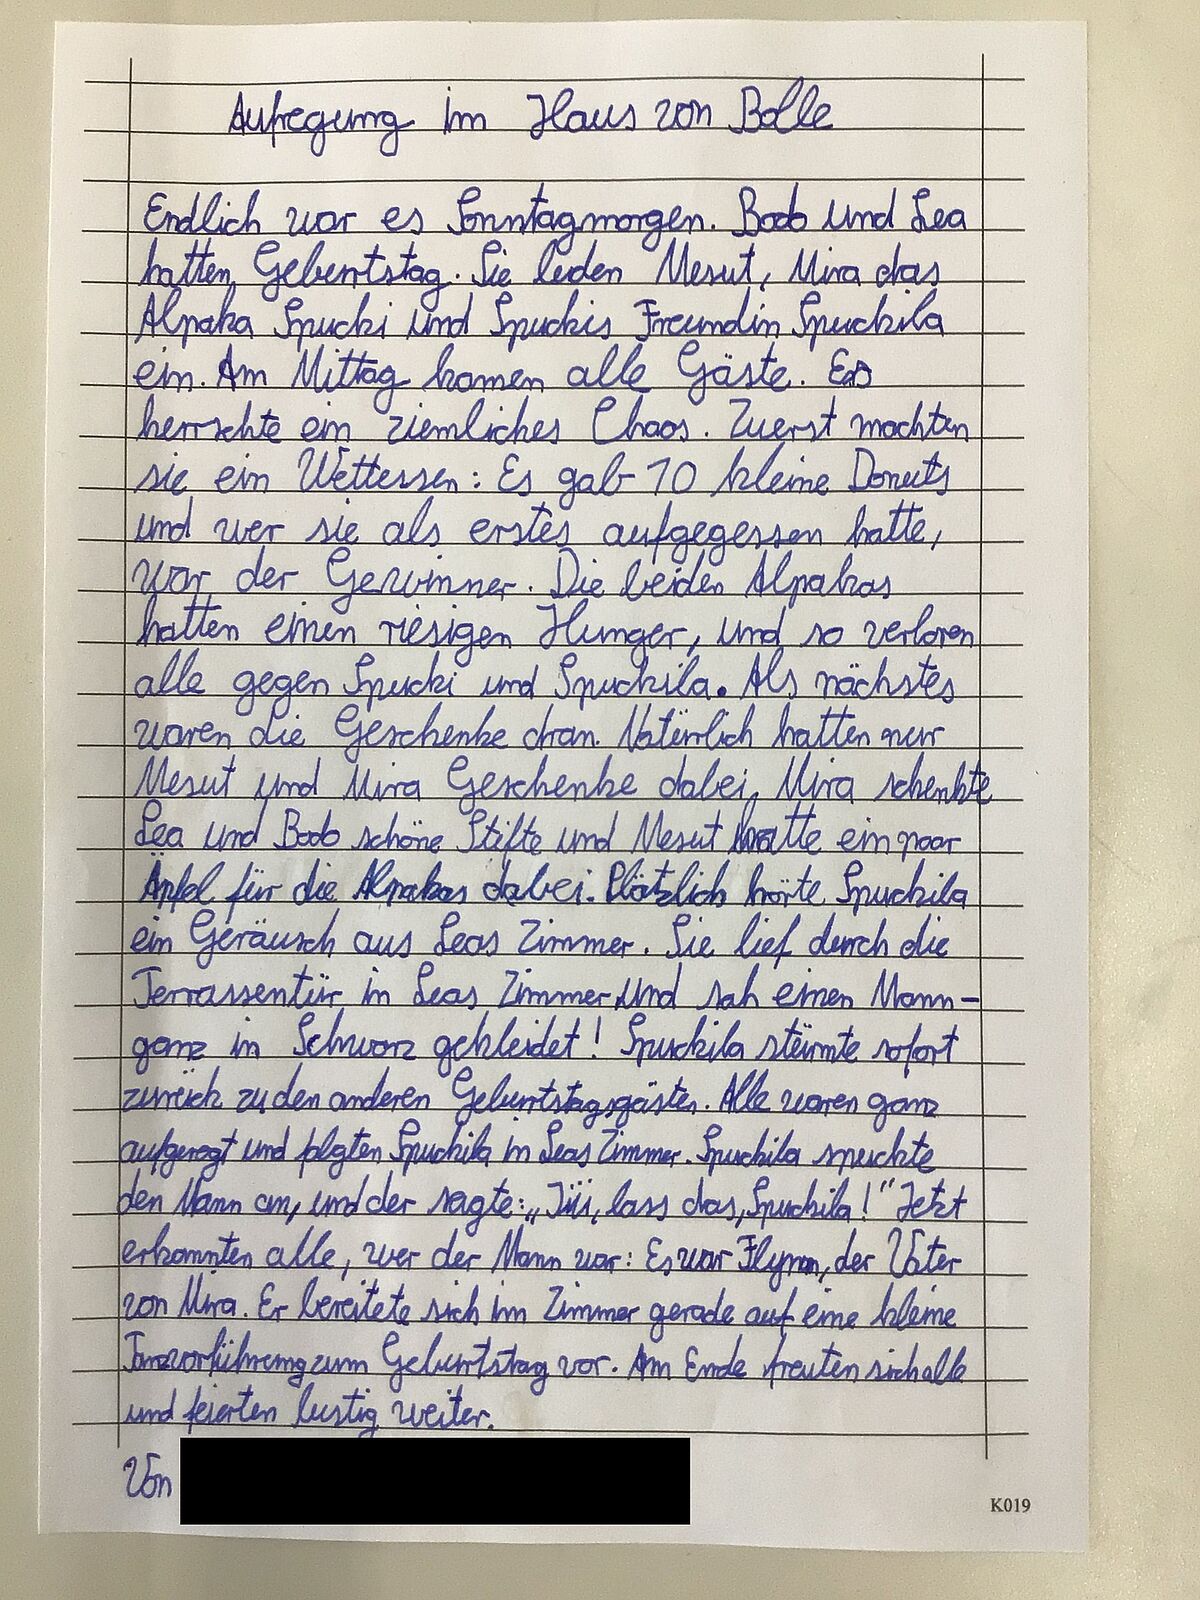 Aufregung im Haus von Bolle
Endlich war es Sonntagmorgen. Bodo und Lea
hatten Geburtstag. Sie luden Mesut, Mira das
Alpaka Spucki und Spuckis Freundin Spuckila
ein. Am Mittag kamen alle Gäste. Es
herrschte ein ziemliches Chaos. Zuerst machten
sie ein Wettessen: Es gab 10 kleine Donuts
und wer sie als erstes aufgegessen hatte,
war der Gewinner. Die beiden Alpakas
hatten einen riesigen Hunger, und so verloren
alle gegen Spucki und Spuckila. Als nächstes
waren die Geschenke dran. Natürlich hatten nur
Mesut und Mira Geschenke dabei. Mira schenkte
Lea und Bodo schöne Stifte und Mesut hatte ein paar
Äpfel für die Alpakas dabei. Plötzlich hörte Spuckila
ein Geräusch aus Leas Zimmer. Sie lief durch die
Terrassentür in Leas Zimmer und sah einen Mann-
ganz in Schwarz gekleidet! Spuckila stürmte sofort
zurück zu den anderen Geburtstagsgästen. Alle waren ganz
aufgeregt und folgten Spuckila in Leas Zimmer. Spuckila spuckte
den Mann an, und der sagte: „Iiii, lass das, Spuckila!“ Jetzt
erkannten alle, wer der Mann war: Es war Flynn, der Vater
von Mira. Er bereitete sich im Zimmer gerade auf eine kleine
Tanzvorführung zum Geburtstag vor. Am Ende freuten sich alle
und feierten lustig weiter.
Von
K019